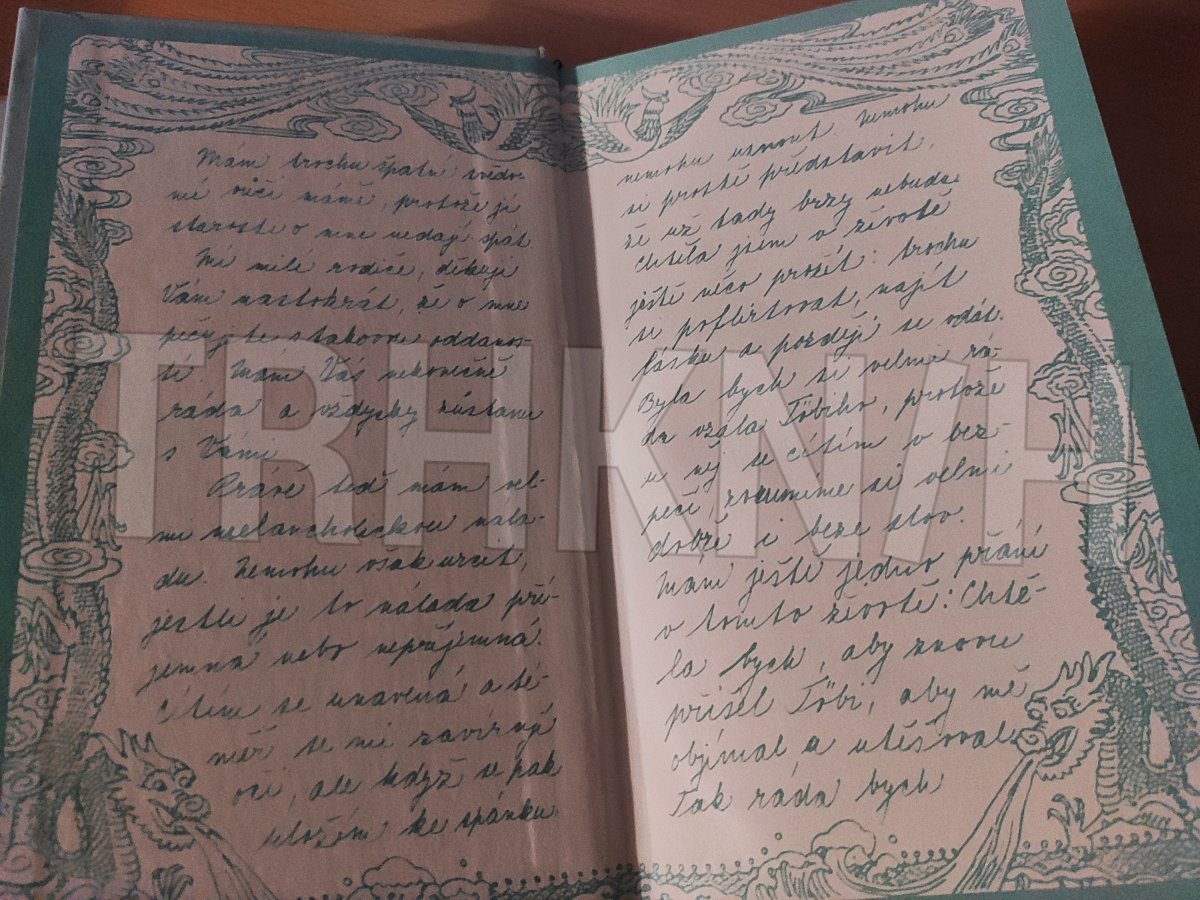 Mám trochu špatné svědo-
mí vůči mámě, protože jí
starosti o mne nedají spát
Mí milí rodiče, děkuji
Vám nastokrát, že o mne
pečujete s takovou oddanos-
tí. Mám Vás nekonečně
ráda a vždycky zůstanu
s Vámi.
Právě teď mám vel-
mi melancholickou nála-
du. Nemohu však určit,
jestli je to nálada pří-
jemná nebo nepříjemná.
Cítím se unavená a té-
měř se mi zavírají
oči, ale když se pak
uložím ke spánku
nemohu usnout. Nemohu
si prostě představit,
že už tady brzy nebudu.
Chtěla jsem v životě
ještě něco prožít: trochu
si poflirtovat, najít
lásku a později se vdát.
Byla bych si velmi rá-
da vzala Töbiho, protože
u něj se cítím v bez-
pečí, rozumíme si velmi
dobře i beze slov.
Mám ještě jedno přání
v tomto životě: Chtě-
la bych, aby znovu
přišel Töbi, aby mě
objímal a utěšoval.
Tak ráda bych
TRHKNIH